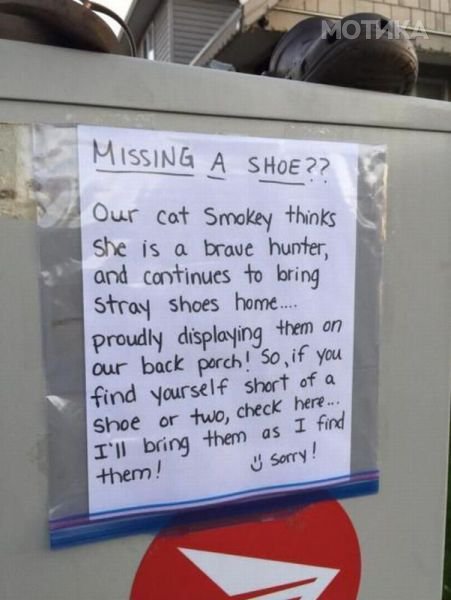 МОТИКА
MISSING A SHOE??
Our cat Smokey thinks
she is a brave hunter,
and continues to bring
stray shoes home....
proudly displaying them on
our back porch! So, if you
find yourself short of a
shoe or two, check here...
I'll bring them as I find
them! Sorry!